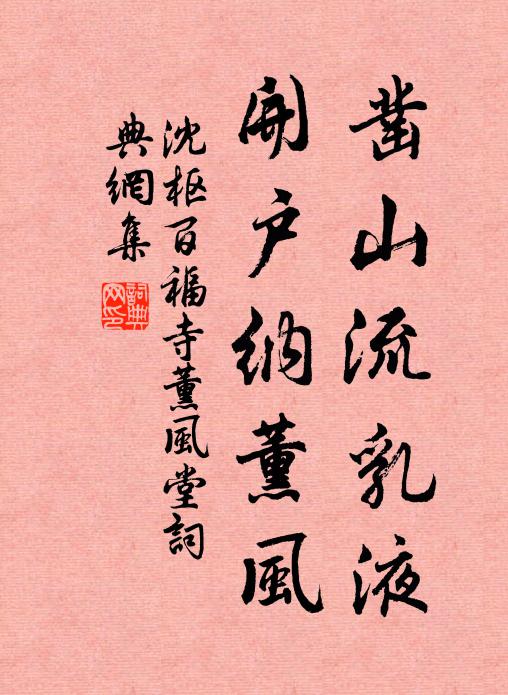 凿山流乳液
開户纳薰風
沈枢百福寺薰風堂詞
典網集
詞典网印